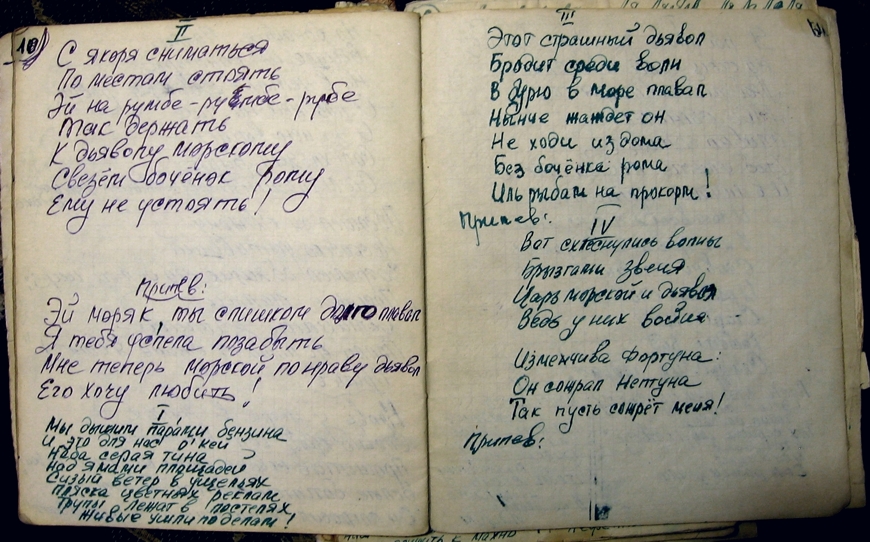 10)
II
С якоря сниматься
По местам стоять
Эй на румбе-румбе-румбе
Так держать
К дьяволу морскому
Свезём бочёнок рому
Ему не устоять!
Припев:
Эй моряк, ты слишком долго плавал
Я тебя успела позабыть
Мне теперь морской по нраву дьявол
Его хочу любить!
I
Мы дышим парами бензина
И это для нас о'кей
Неба серая тина
Над ямами площадей
Сизый ветер в ущельях
Пляска цветных реклам
Трупы лежат в постелях
Живые ушли по делам!
III
Этот страшный дьявол
Бродит среди волн
В бурю в море плавал
Нынче жаждет он
Не ходи из дома
Без бочёнка рома
Иль рыбам на прокорм!
Припев:
IV
Вот схлеснулись волны
Брызгами звеня
Царь морской и дьявол
Ведь у них война
Изменчива Фортуна:
Он сожрал Нептуна
Так пусть сожрёт меня!
Припев: